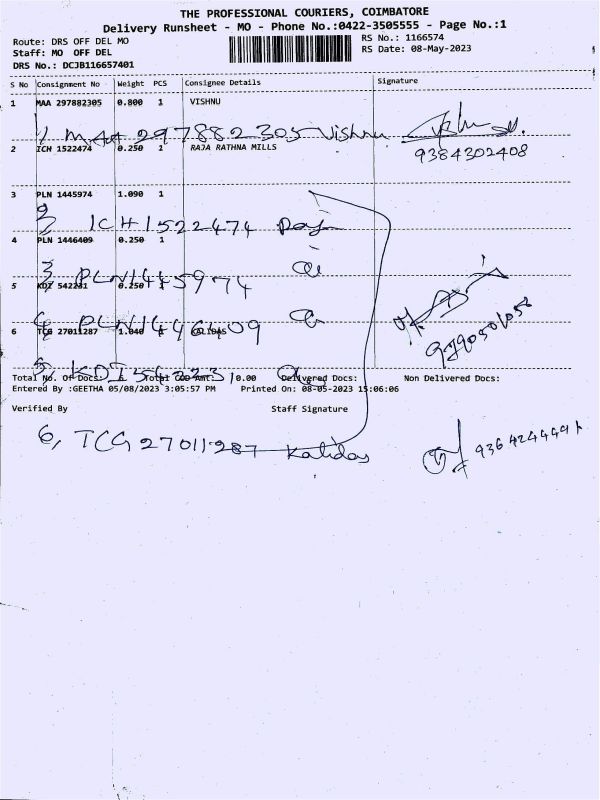 THE PROFESSIONAL COURIERS, COIMBATORE
Delivery Runsheet - MO - Phone No.:0422-3505555 - Page No.:1
Route: DRS OFF DEL MO
RS No.: 1166574
Staff: MO OFF DEL
RS Date: 08-May-2023
DRS No.: DCJB116657401
S No Consignment No Weight PCS Consignee Details Signature
1 MAA 297882305 0.800 1 VISHNU
1, MAA 297882305 Vishnu
9384302408
2 ICH 1522474 0.250 1 RAJA RATHNA MILLS
3 PLN 1445974 1.090 1
2, ICH 1522474
4 PLN 1446409 0.250 1
3, PLN1445974
5 KDZ 542231 0.250 1
4, PLN1446409
6 TCG 27011287 1.040 1 KALIDAS
5,
Total No. Of Docs: 6 Total COD Amt: 0.00 Delivered Docs: Non Delivered Docs:
Entered By :GEETHA 05/08/2023 3:05:57 PM Printed On: 08-05-2023 15:06:06
Verified By Staff Signature
6, TCG 27011287 Kalidas